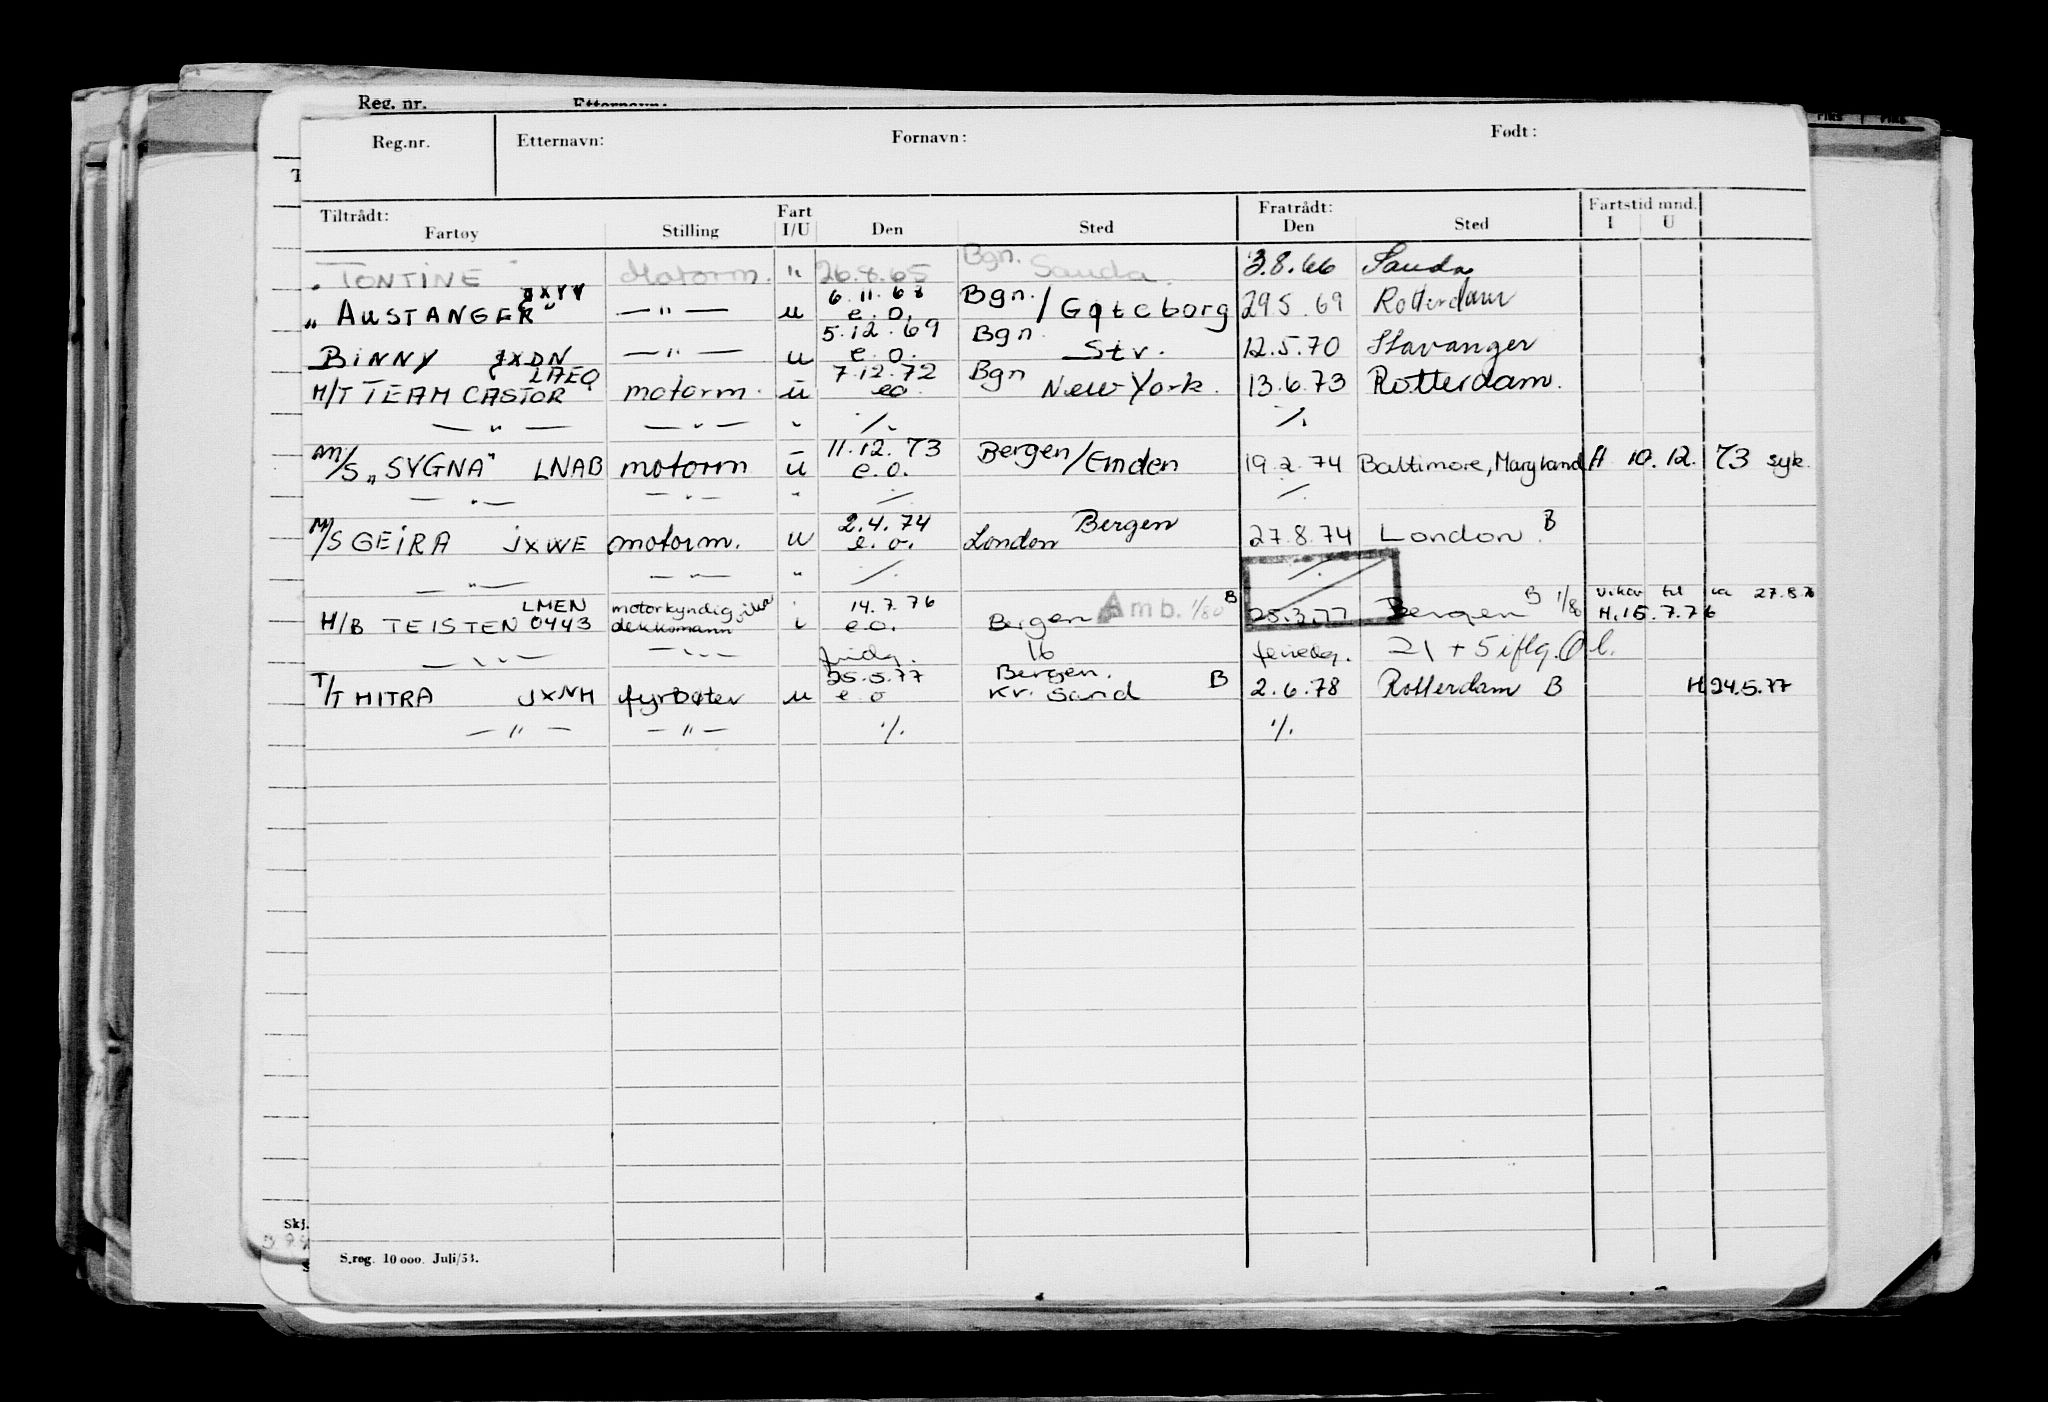 Reg. nr. Etternavn:
Reg.nr. Etternavn: Fornavn: Født:
Tiltrådt: Fart Fratrådt: Fartstid mnd.
Fartøy Stilling I/U Den Sted Den Sted I U
"TONTINE" Motorm. " 26.8.65 Bgn. Sauda 3.8.66 Sauda
JXYY 6.11.68 Bgn.
"AUSTANGER" —"— u e.o. / Gøteborg 29.5.69 Rotterdam
5.12.69 Bgn.
BINNY JXDN —"— u e.o. Stv. 12.5.70 Stavanger
LAEQ 7.12.72 Bgn
M/T TEAM CASTOR motorm. u eo. New York. 13.6.73 Rotterdam.
—"— —"— " ./. ./.
11.12.73
M/S "SYGNA" LNAB motorm u e.o. Bergen/Emden 19.2.74 Baltimore, Maryland A 10.12.73 syk.
—"— —"— " ./. ./.
2.4.74 Bergen
M/S GEIRA JXWE motorm. u e.o. London 27.8.74 London. B
—"— —"— " ./. ./.
LMEN motorkyndig 14.7.76 B B 1/8 vikar til ca 27.8.76
M/B TEISTEN 0443 dekksmann i e.o. Bergen Amb. 1/80 25.3.77 Bergen H.15.7.76
—"— —"— 16 feriedg. 21 + 5 iflg.
25.5.77 Bergen.
T/T MITRA JXNH fyrbøter u e.o Kr. Sand B 2.6.78 Rotterdam B H 24.5.77
—"— —"— ./. ./.
Skj.
S.reg. 10 000. Juli/53.